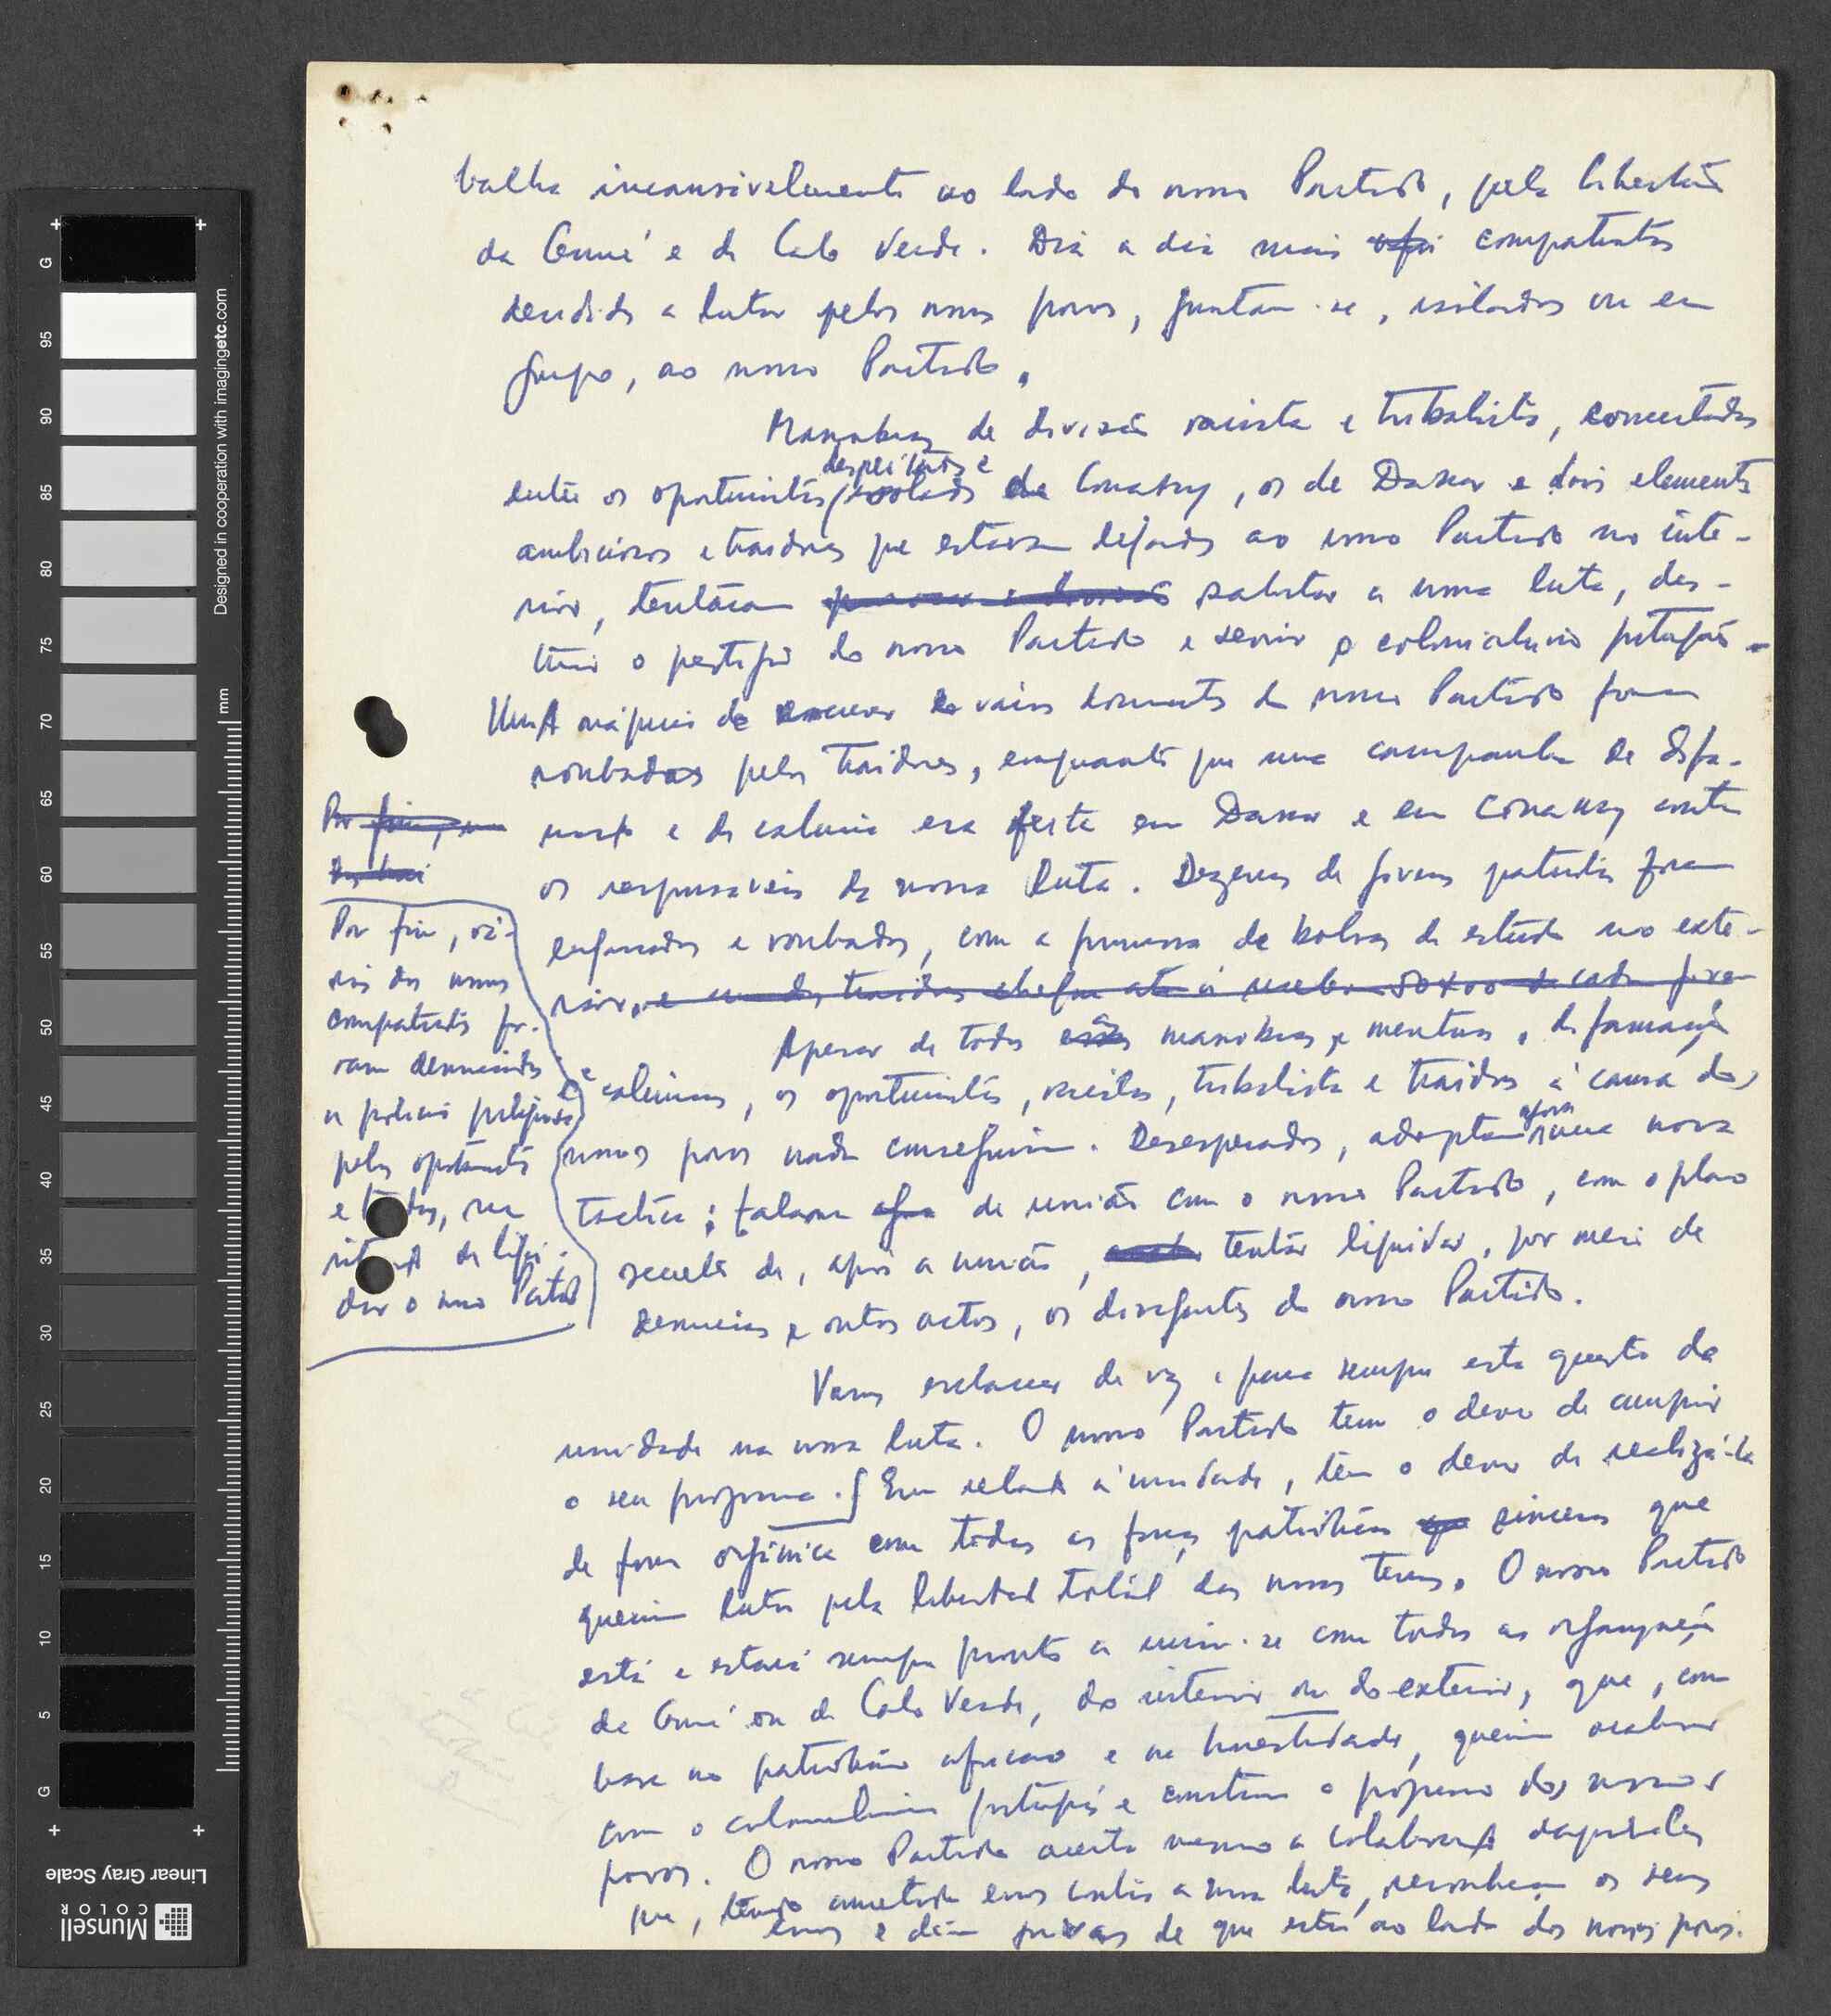 balha incansàvelmente ao lado do nosso Partido, pela libertação
da Guiné e de Cabo Verde. Dia a dia mais compatriotas
decididos a lutar pelos nossos povos, juntam-se, isolados ou em
grupo, ao nosso Partido.
Manobras de divisão racista e tribalista, concertadas
despeitados e
entre os oportunistas isolados de Conakry, os de Dakar e dois elementos
ambiciosos e traidores que estavam ligados ao nosso Partido no inte-
rior, tentaram sabotar a nossa luta, des-
truir o prestígio do nosso Partido e servir o colonialismo português.
Uma máquina de escrever e vários documentos do nosso Partido foram
roubados pelos traidores, enquanto que uma campanha de difa-
mação e de calúnia era feita em Dakar e em Conakry contra
os responsáveis da nossa luta. Dezenas de jovens patriotas foram
enganados e roubados, com a promessa de bolsas de estudo no exte-
rior, e um dos traidores chegou até a receber 50$00 de cada jovem
Por fim, um
dos
Por fim, vá-
rios dos nossos
compatriotas fo-
ram denunciados
à polícia portuguesa
pelos oportunistas
e, na
de liqui-
dar o nosso Partido
Apesar de todas essas manobras, mentiras, difamação
e calúnias, os oportunistas, racistas, tribalistas e traidores à causa dos
agora
nossos povos nada conseguiram. Desesperados, adoptam uma nova
tactica: falam agora de união com o nosso Partido, com o plano
secreto de, após a união, tentar liquidar, por meio de
denúncias e outros actos, os dirigentes do nosso Partido.
Vamos esclarecer de vez e para sempre esta questão da
unidade na nossa luta. O nosso Partido tem o dever de cumprir
o seu programa. Em relação à unidade, tem o dever de realizá-la
de forma orgânica com todas as forças patrióticas sinceras que
queiram lutar pela liberdade total das nossas terras. O nosso Partido
está e estará sempre pronto a unir-se com todas as organizações
da Guiné ou de Cabo Verde, do interior ou do exterior, que, com
base no patriotismo africano e na honestidade, queiram acabar
com o colonialismo português e construir o progresso dos nossos
povos. O nosso Partido aceita mesmo a colaboração daqueles
que, tendo cometido erros contra a nossa luta, reconheçam os seus
erros e dêem provas de que estão ao lado dos nossos povos.
Designed in cooperation with imagingetc.com
mm
G
95
90
85
80
75
70
65
60
55
50
45
40
35
30
25
20
15
10
5
G
Linear Gray Scale
Munsell
COLOR